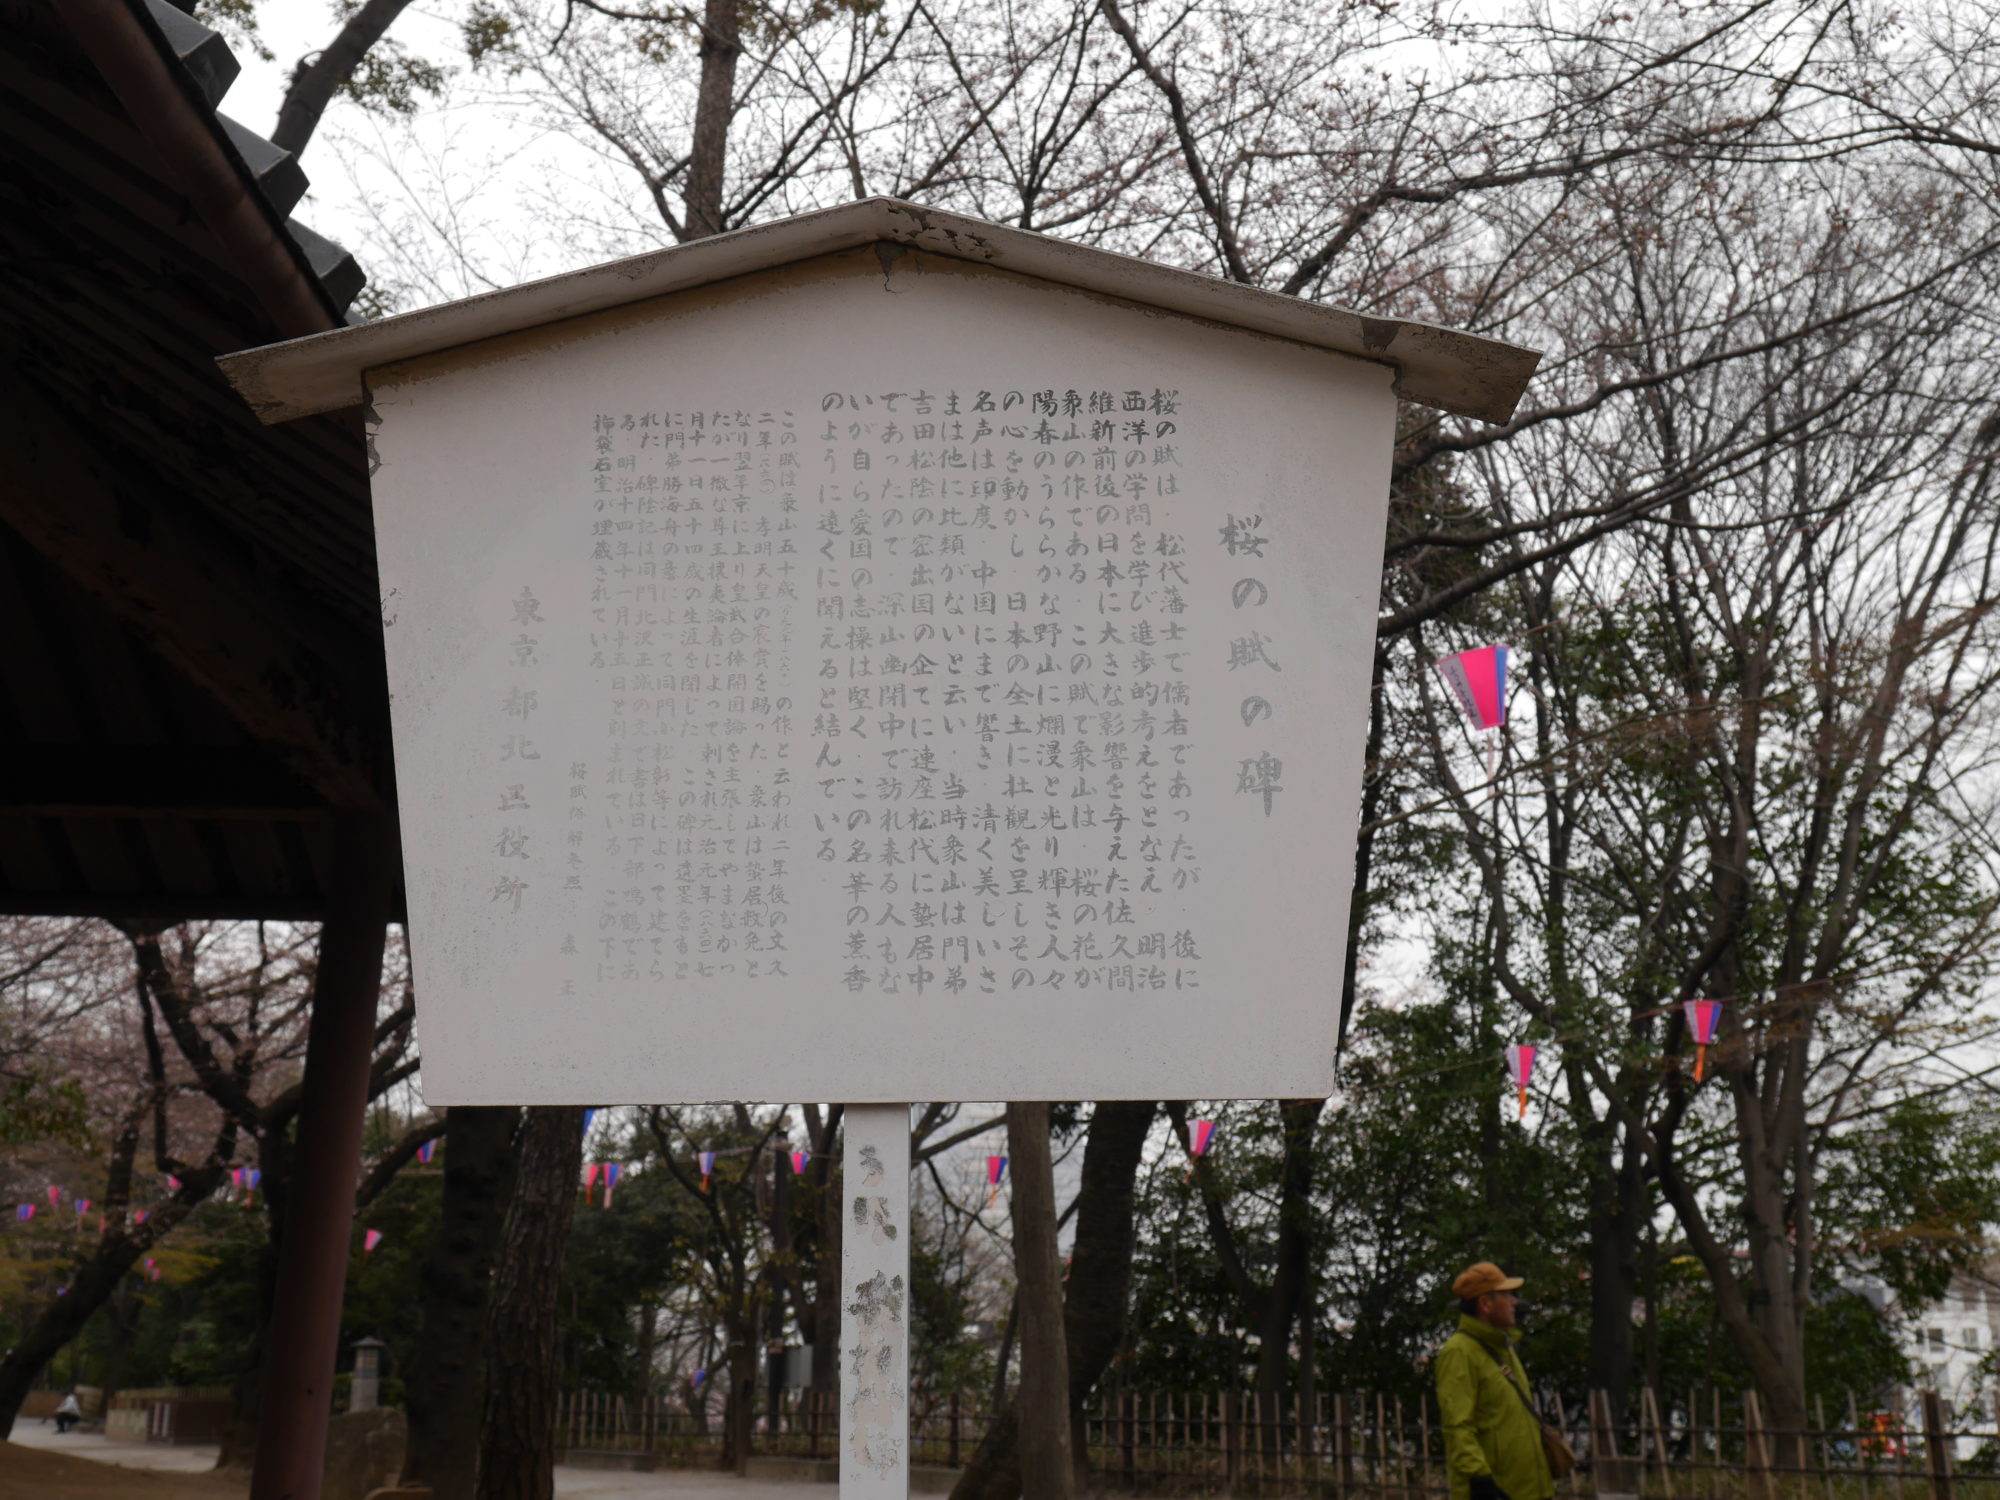 桜の賦の碑
桜の賦は、松代藩士で儒者であったが、後に
西洋の学問を学び進歩的考えをとなえ、明治
維新前後の日本に大きな影響を与えた佐久間
象山の作である。この賦で象山は、桜の花が
陽春のうららかな野山に爛漫と光り輝き人々
の心を動かし、日本の全土に壮観を呈しその
名声は印度、中国にまで響き、清く美しいさ
まは他に比類がないと云い、当時象山は門弟
吉田松陰の密出国の企てに連座松代に蟄居中
であったので、深山幽閉中で訪れ来る人もな
いが自ら愛国の志操は堅く、この名華の薫香
のように遠くに聞えると結んでいる
この賦は象山五十歳の作と云われ二年後の文久
二年 孝明天皇の宸賞を賜った。象山は蟄居赦免と
なり翌々年京に上り皇武合体開国論を主張してやまなかっ
たが一徹な尊王攘夷論者によって刺され元治元年 七
月十一日五十四歳の生涯を閉じた。この碑は遺墨をもと
に門弟勝海舟の意によって同門小松彰等によって建てら
れた。碑陰記は同門北沢正誠の文で書は日下部鳴鶴であ
る。明治十四年十一月十五日と刻まれている。この下に
挿袋石室が埋蔵されている。
桜賦俗解参照
東京都北区役所